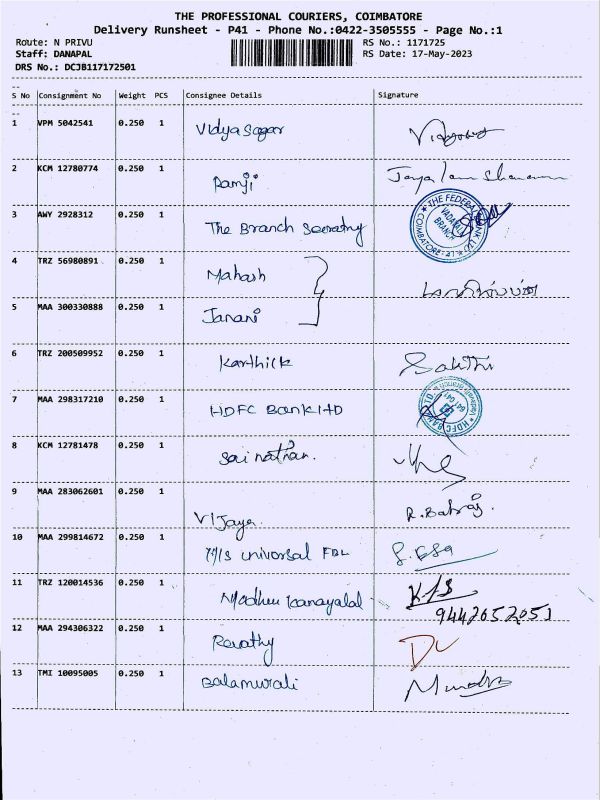 THE PROFESSIONAL COURIERS, COIMBATORE
Delivery Runsheet - P41 - Phone No.:0422-3505555 - Page No.:1
Route: N PRIVU RS No.: 1171725
Staff: DANAPAL RS Date: 17-May-2023
DRS No.: DCJB117172501
S No Consignment No Weight PCS Consignee Details Signature
1 VPM 5042541 0.250 1 Vidya sagar
2 KCM 12780774 0.250 1 Ramji
3 AWY 2928312 0.250 1 The Branch
THE FEDERAL BANK LTD
VADAVALLI BRANCH
COIMBATORE-41
4 TRZ 56980891 0.250 1 Mahash
5 MAA 300330888 0.250 1 Janani
6 TRZ 200509952 0.250 1 Karthick Sakthi
7 MAA 298317210 0.250 1 HDFC Bank LTD
HDFC BANK LTD
8 KCM 12781478 0.250 1 Sai nathan.
9 MAA 283062601 0.250 1 Vijaya
10 MAA 299814672 0.250 1 M/S universal
11 TRZ 120014536 0.250 1 Madhu
9442652051
12 MAA 294306322 0.250 1 Revathy
13 TMI 10095005 0.250 1 Balamurali